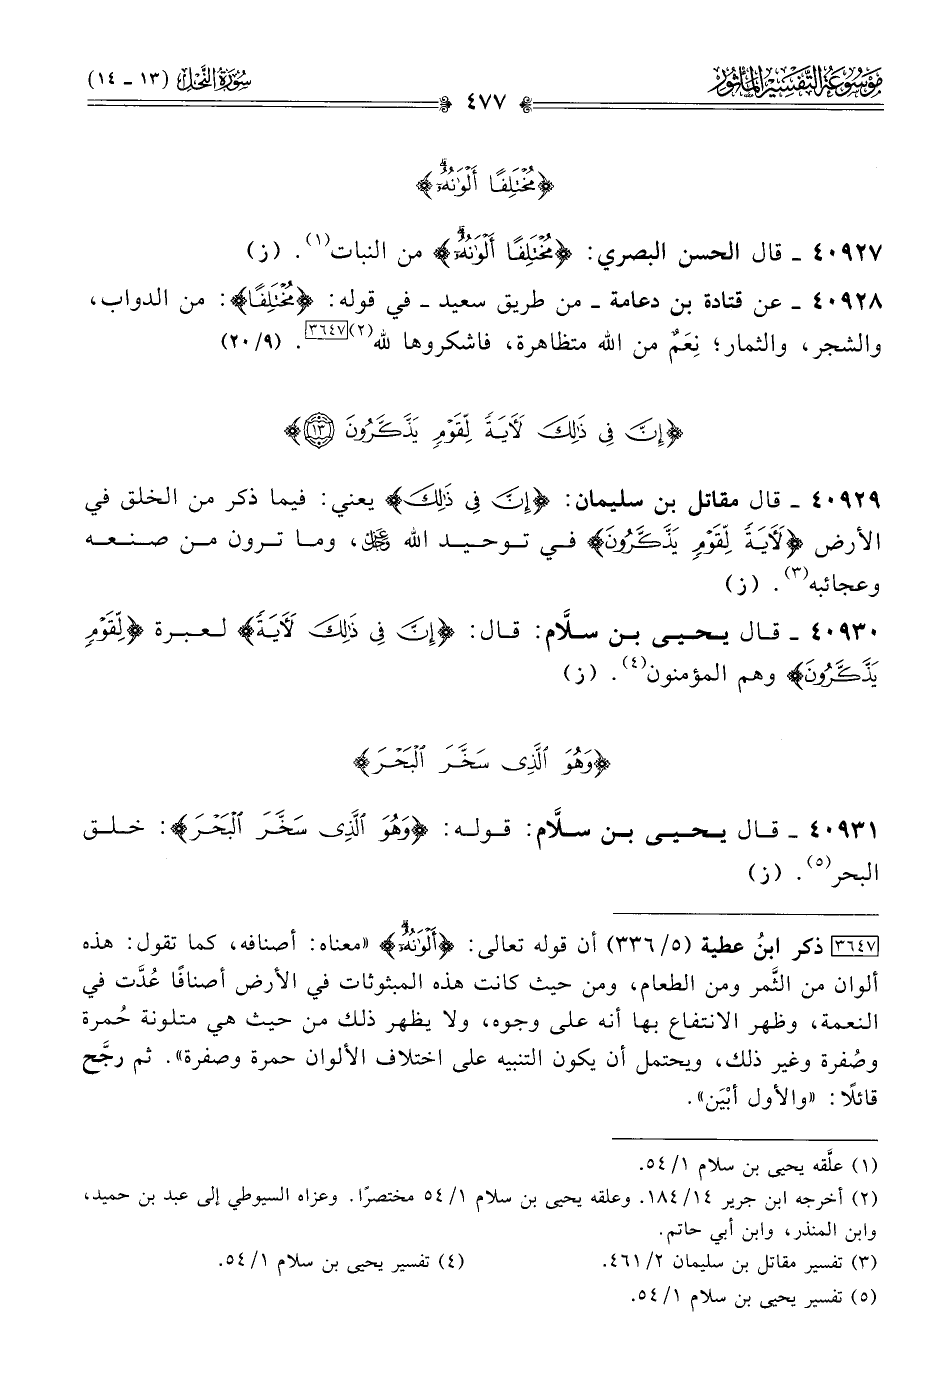 موسوعة التفسير المأثور
سورة النحل (١٣ - ١٤)
٤٧٧
﴿مُخْتَلِفًا أَلْوَٰنُهُۥٓ﴾
٤٠٩٢٧ ـ قال الحسن البصري: ﴿مُخْتَلِفًا أَلْوَٰنُهُۥٓ﴾ من النبات(١). (ز)
٤٠٩٢٨ ـ عن قتادة بن دعامة ـ من طريق سعيد ـ في قوله: ﴿مُخْتَلِفًا﴾: من الدواب،
والشجر، والثمار؛ نِعَمٌ من الله متظاهرة، فاشكروها لله(٢)[٣٦٤٧]. (٢٠/٩)
﴿إِنَّ فِى ذَٰلِكَ لَءَايَةً لِّقَوْمٍ يَذَّكَّرُونَ ١٣﴾
٤٠٩٢٩ ـ قال مقاتل بن سليمان: ﴿إِنَّ فِى ذَٰلِكَ﴾ يعني: فيما ذكر من الخلق في
الأرض ﴿لَءَايَةً لِّقَوْمٍ يَذَّكَّرُونَ﴾ في توحيد الله ﷿، وما ترون من صنعه
وعجائبه(٣). (ز)
٤٠٩٣٠ ـ قال يحيى بن سلَّام: قال: ﴿إِنَّ فِى ذَٰلِكَ لَءَايَةً﴾ لعبرة ﴿لِّقَوْمٍ
يَذَّكَّرُونَ﴾ وهم المؤمنون(٤). (ز)
﴿وَهُوَ ٱلَّذِى سَخَّرَ ٱلْبَحْرَ﴾
٤٠٩٣١ ـ قال يحيى بن سلَّام: قوله: ﴿وَهُوَ ٱلَّذِى سَخَّرَ ٱلْبَحْرَ﴾: خلق
البحر(٥). (ز)
[٣٦٤٧] ذكر ابنُ عطية (٣٣٦/٥) أن قوله تعالى: ﴿أَلْوَٰنُهُۥٓ﴾ «معناه: أصنافه، كما تقول: هذه
ألوان من الثَّمر ومن الطعام، ومن حيث كانت هذه المبثوثات في الأرض أصنافًا عُدَّت في
النعمة، وظهر الانتفاع بها أنه على وجوه، ولا يظهر ذلك من حيث هي متلونة حُمرة
وصُفرة وغير ذلك، ويحتمل أن يكون التنبيه على اختلاف الألوان حمرة وصفرة». ثم رجَّح
قائلًا: «والأول أبْيَن».
(١) علَّقه يحيى بن سلام ٥٤/١.
(٢) أخرجه ابن جرير ١٨٤/١٤. وعلقه يحيى بن سلام ٥٤/١ مختصرًا. وعزاه السيوطي إلى عبد بن حميد،
وابن المنذر، وابن أبي حاتم.
(٣) تفسير مقاتل بن سليمان ٤٦١/٢.
(٤) تفسير يحيى بن سلام ٥٤/١.
(٥) تفسير يحيى بن سلام ٥٤/١.